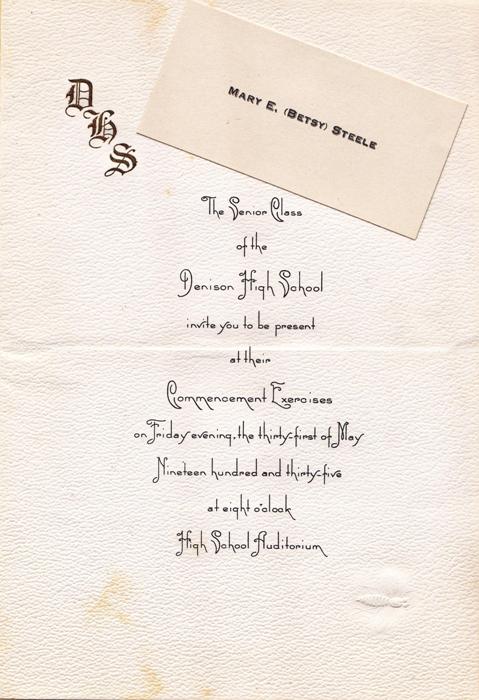 DHS
MARY E. (BETSY) STEELE
The Senior Class
of the
Denison High School
invite you to be present
at their
Commencement Exercises
on Friday evening, the thirty-first of May
Nineteen hundred and thirty-five
at eight o'clock
High School Auditorium